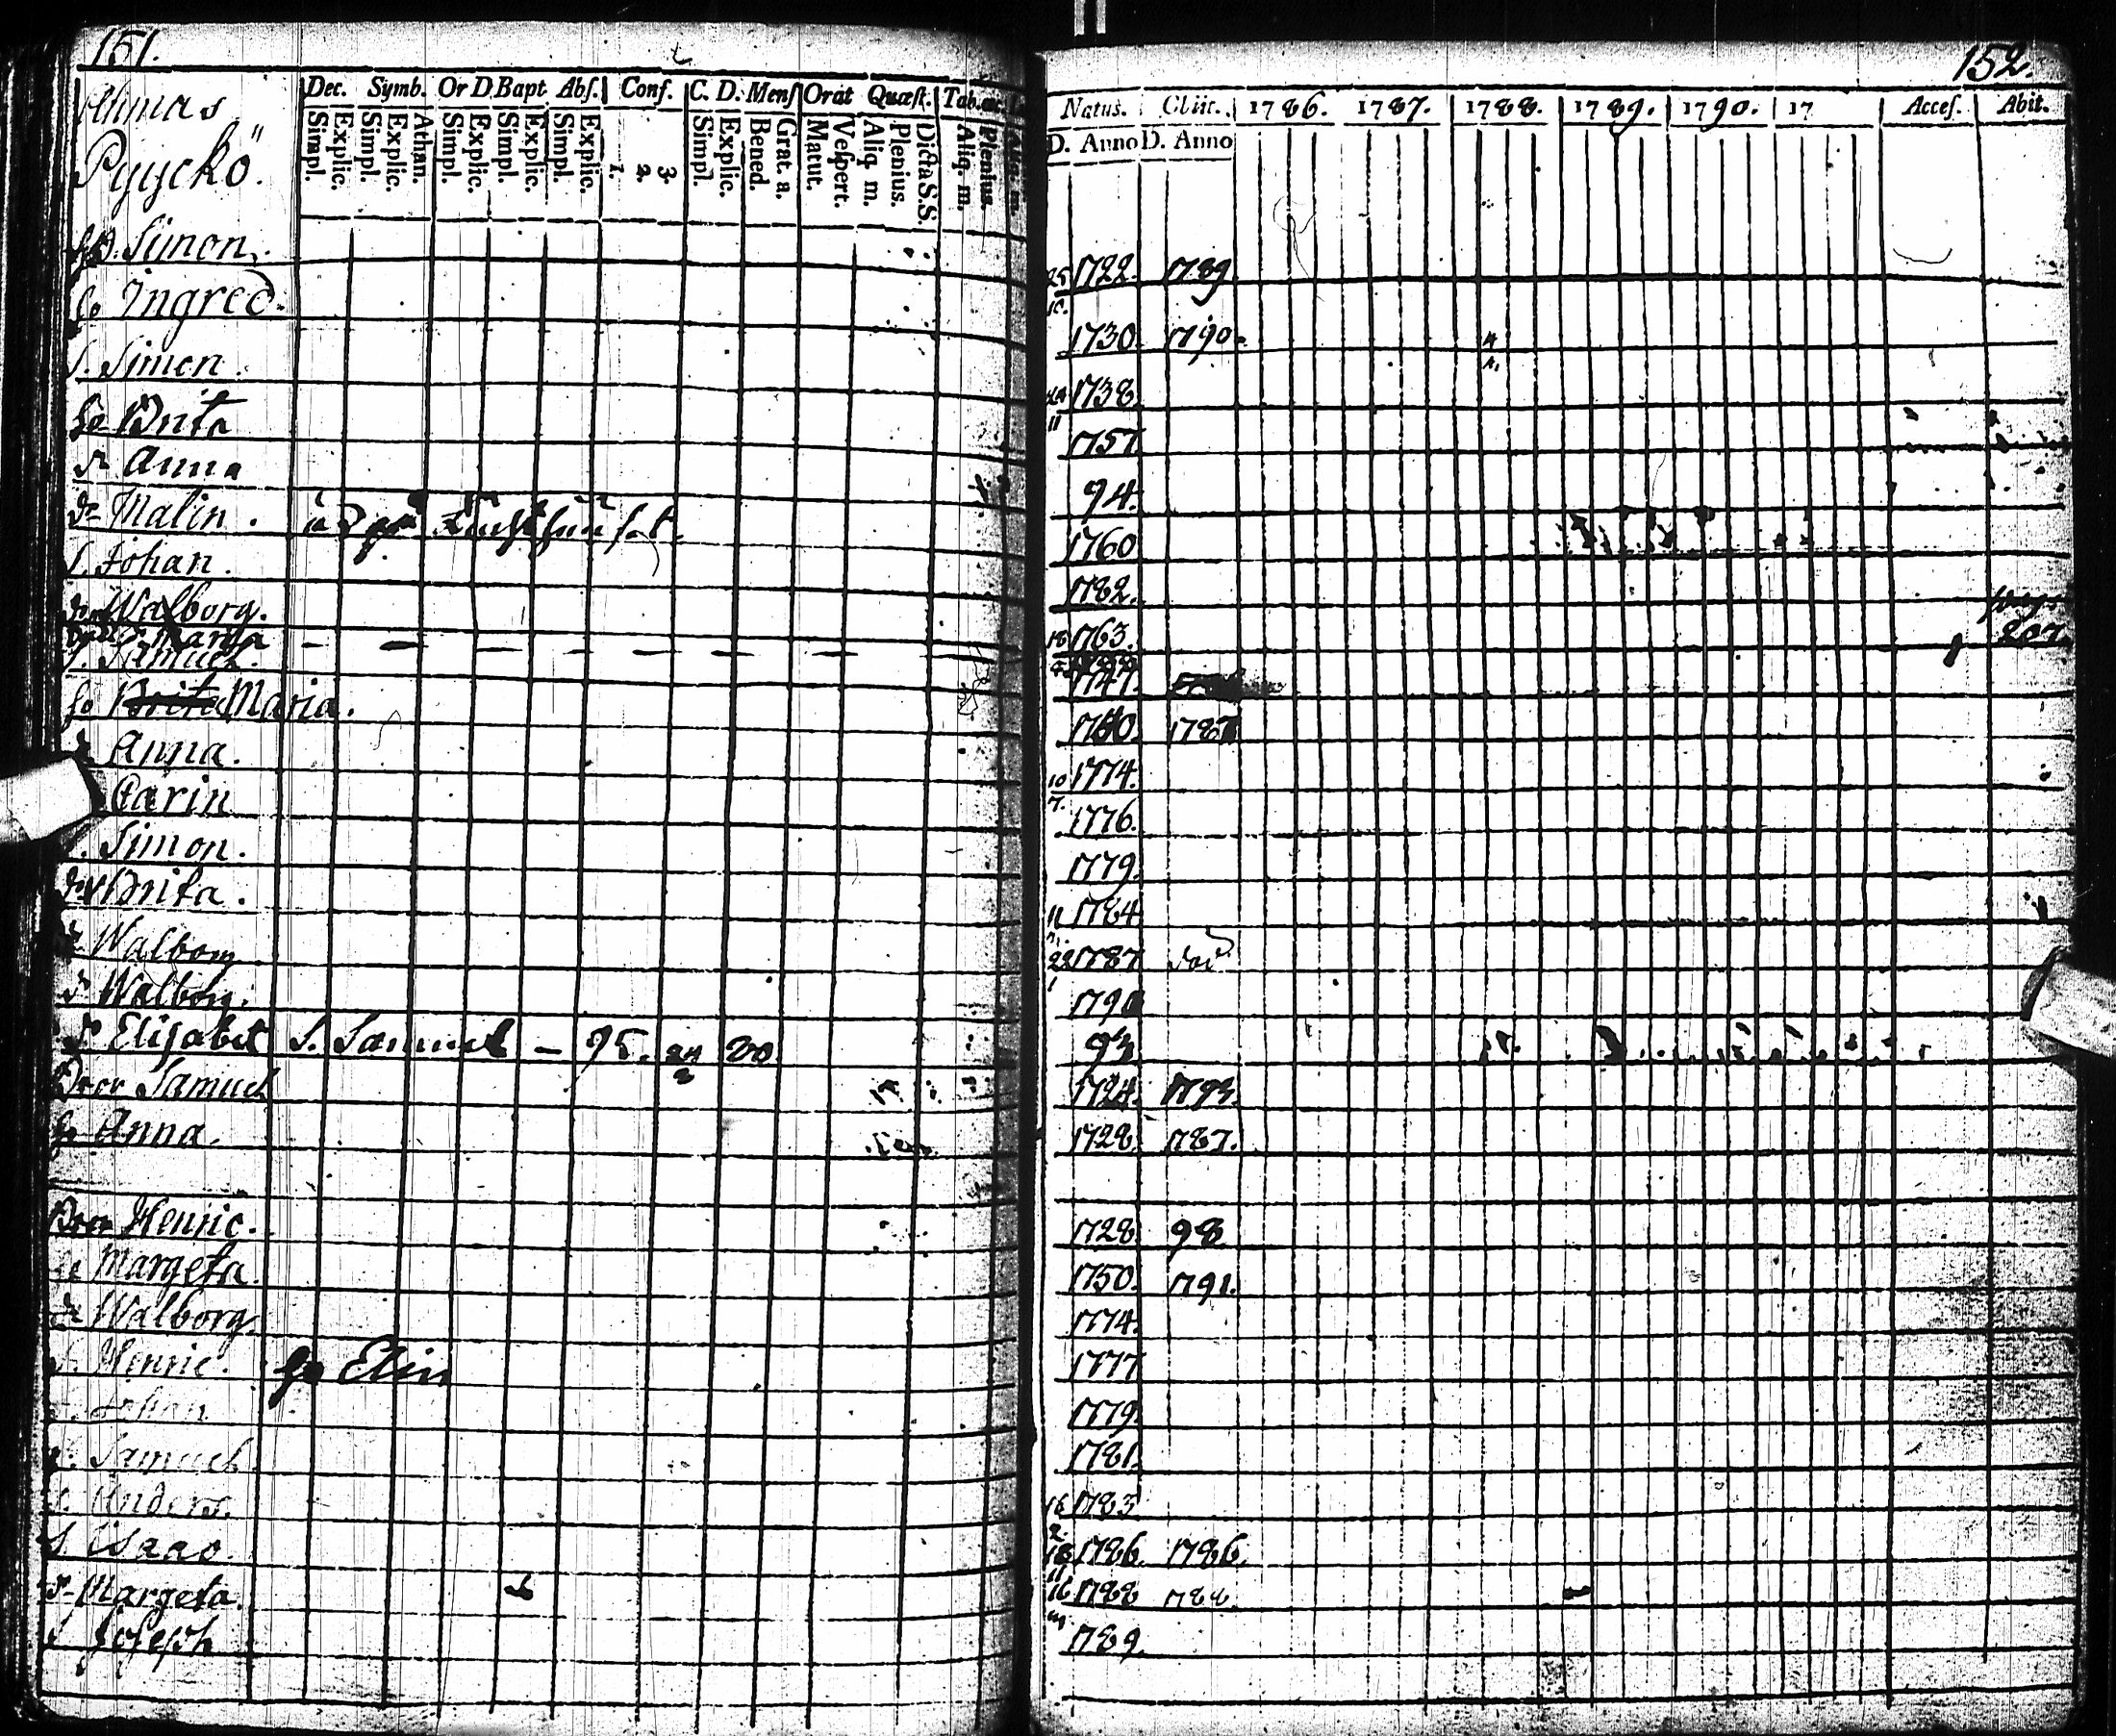 151.
Pyyckö.
Dec. Symb. Or D. Bapt Abs. Conf. C. D. Mens Orat Quæst. Tab. œc.
Simpl. Explic. Simpl. Explic. Athan. Simpl. Explic. Simpl. Explic. Simpl. Explic. 1. 2. 3. Simpl. Explic. Bened. Grat. a. Matut. Vespert. Aliq. m. Plenius. Dicta S. S. Aliq. m. Plenius.
Simon.
Ingred.
S. Simon.
Brita
Anna
Malin.
S. Johan.
Walborg.
S. Samuel.
Brita Maria.
Anna.
Carin
Simon.
Brita.
Walborg
Walborg.
Elisabet S. Samuel – 95. 20
Bror Samuel
Anna.
Bror Henric.
Margeta.
Walborg.
Henric. Elin
Johan
Samuel.
Anders.
S. Isaac.
Margeta.
S Joseph
152.
Natus. Obiit. 1786. 1787. 1788. 1789. 1790. 17 Acces. Abit.
D. Anno D. Anno
1722. 1789
1730. 1790.
1738.
1757.
94.
1760
1782.
18 1763. 207
1747.
1787
10 1774.
7. 1776.
1779.
11 1784
22 1787
1790
93
1724. 1793.
1728 1787.
1728 98
1750. 1791.
1774.
1777
1779.
1781.
1783.
1786 1786.
16 1788 1788.
1789.